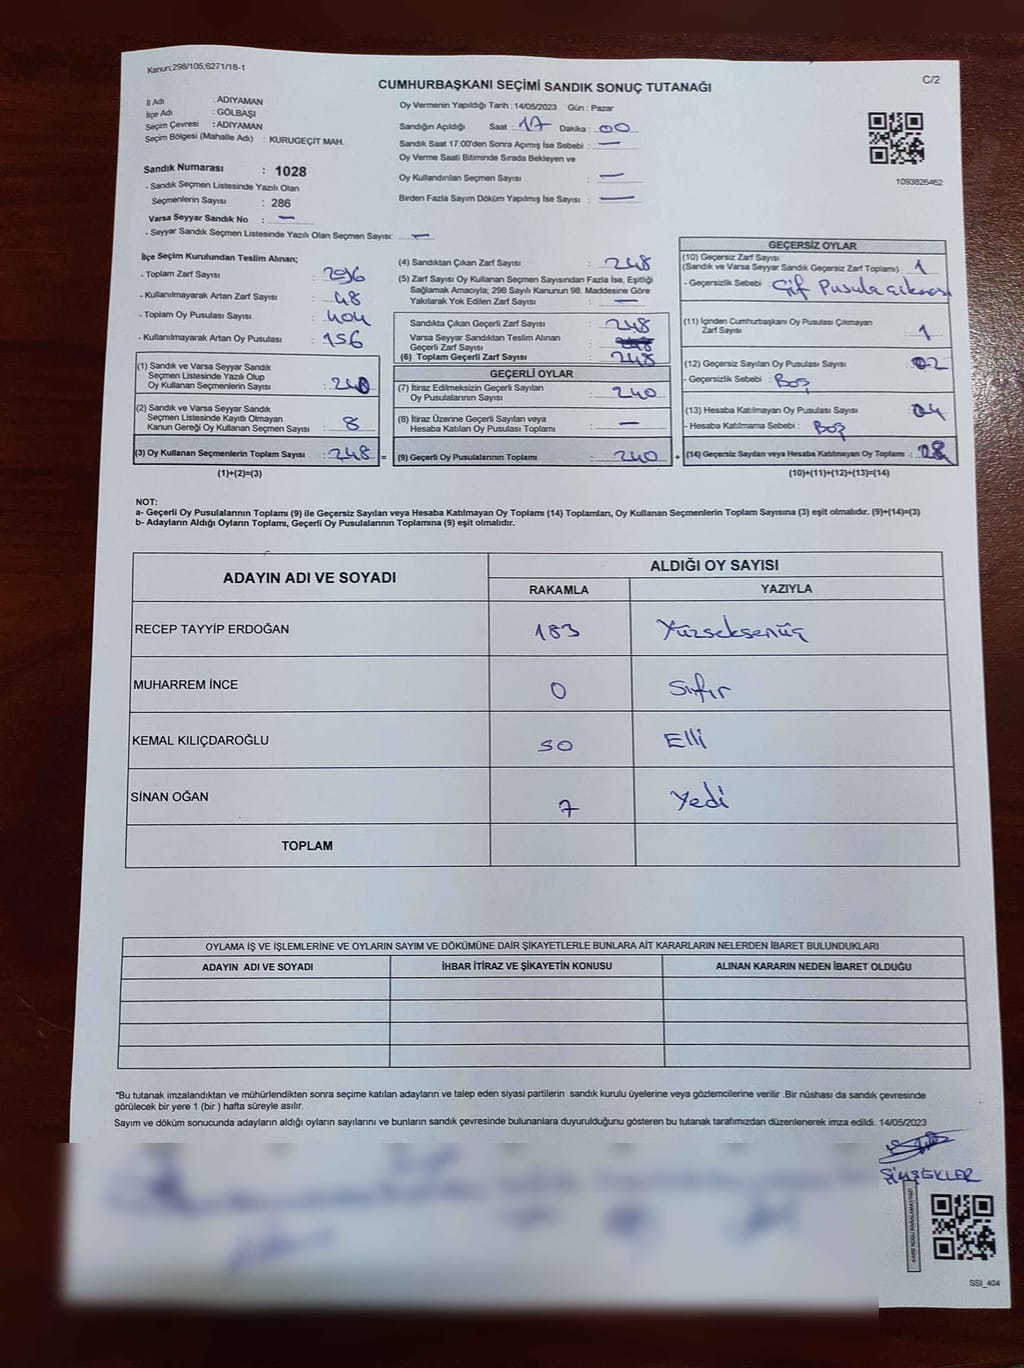 Kanun:298/105,6271/18-1
C/2
CUMHURBAŞKANI SEÇİMİ SANDIK SONUÇ TUTANAĞI
İl Adı : ADIYAMAN
İlçe Adı : GÖLBAŞI
Seçim Çevresi : ADIYAMAN
Seçim Bölgesi (Mahalle Adı) : KURUGEÇİT MAH.
Sandık Numarası : 1028
- Sandık Seçmen Listesinde Yazılı Olan
Seçmenlerin Sayısı : 286
Varsa Seyyar Sandık No : —
- Seyyar Sandık Seçmen Listesinde Yazılı Olan Seçmen Sayısı: —
Oy Vermenin Yapıldığı Tarih : 14/05/2023 Gün : Pazar
Sandığın Açıldığı Saat : 17 Dakika : 00
Sandık Saat 17:00'den Sonra Açımış İse Sebebi : —
Oy Verme Saati Bitiminde Sırada Bekleyen ve
Oy Kullandırılan Seçmen Sayısı : —
Birden Fazla Sayım Döküm Yapılmış İse Sayısı : —
1093825462
İlçe Seçim Kurulundan Teslim Alınan;
- Toplam Zarf Sayısı : 296
- Kullanılmayarak Artan Zarf Sayısı : 48
- Toplam Oy Pusulası Sayısı : 404
- Kullanılmayarak Artan Oy Pusulası : 156
(1) Sandık ve Varsa Seyyar Sandık
Seçmen Listesinde Yazılı Olup
Oy Kullanan Seçmenlerin Sayısı : 240
(2) Sandık ve Varsa Seyyar Sandık
Seçmen Listesinde Kayıtlı Olmayan
Kanun Gereği Oy Kullanan Seçmen Sayısı : 8
(3) Oy Kullanan Seçmenlerin Toplam Sayısı : 248 =
(1)+(2)=(3)
(4) Sandıktan Çıkan Zarf Sayısı : 248
(5) Zarf Sayısı Oy Kullanan Seçmen Sayısından Fazla İse, Eşitliği
Sağlamak Amacıyla; 298 Sayılı Kanunun 98. Maddesine Göre
Yakılarak Yok Edilen Zarf Sayısı : —
Sandıkta Çıkan Geçerli Zarf Sayısı : 248
Varsa Seyyar Sandıktan Teslim Alınan
Geçerli Zarf Sayısı :
(6) Toplam Geçerli Zarf Sayısı : 248
GEÇERLİ OYLAR
(7) İtiraz Edilmeksizin Geçerli Sayılan
Oy Pusulalarının Sayısı : 240
(8) İtiraz Üzerine Geçerli Sayılan veya
Hesaba Katılan Oy Pusulası Toplamı : —
(9) Geçerli Oy Pusulalarının Toplamı : 240 +
GEÇERSİZ OYLAR
(10) Geçersiz Zarf Sayısı
(Sandık ve Varsa Seyyar Sandık Geçersiz Zarf Toplamı) : 1
- Geçersizlik Sebebi : Çif Pusula çıkması
(11) İçinden Cumhurbaşkanı Oy Pusulası Çıkmayan
Zarf Sayısı : 1
(12) Geçersiz Sayılan Oy Pusulası Sayısı : 02
- Geçersizlik Sebebi : Boş
(13) Hesaba Katılmayan Oy Pusulası Sayısı : 04
- Hesaba Katılmama Sebebi : Boş
(14) Geçersiz Sayılan veya Hesaba Katılmayan Oy Toplamı : 08
(10)+(11)+(12)+(13)=(14)
NOT:
a- Geçerli Oy Pusulalarının Toplamı (9) ile Geçersiz Sayılan veya Hesaba Katılmayan Oy Toplamı (14) Toplamları, Oy Kullanan Seçmenlerin Toplam Sayısına (3) eşit olmalıdır. (9)+(14)=(3)
b- Adayların Aldığı Oyların Toplamı, Geçerli Oy Pusulalarının Toplamına (9) eşit olmalıdır.
ADAYIN ADI VE SOYADI
ALDIĞI OY SAYISI
RAKAMLA YAZIYLA
RECEP TAYYİP ERDOĞAN 183 Yüzseksenüç
MUHARREM İNCE 0 Sıfır
KEMAL KILIÇDAROĞLU 50 Elli
SİNAN OĞAN 7 Yedi
TOPLAM
OYLAMA İŞ VE İŞLEMLERİNE VE OYLARIN SAYIM VE DÖKÜMÜNE DAİR ŞİKAYETLERLE BUNLARA AİT KARARLARIN NELERDEN İBARET BULUNDUKLARI
ADAYIN ADI VE SOYADI İHBAR İTİRAZ VE ŞİKAYETİN KONUSU ALINAN KARARIN NEDEN İBARET OLDUĞU
*Bu tutanak imzalandıktan ve mühürlendikten sonra seçime katılan adayların ve talep eden siyasi partilerin sandık kurulu üyelerine veya gözlemcilerine verilir .Bir nüshası da sandık çevresinde
görülecek bir yere 1 (bir ) hafta süreyle asılır.
Sayım ve döküm sonucunda adayların aldığı oyların sayılarını ve bunların sandık çevresinde bulunanlara duyurulduğunu gösteren bu tutanak tarafımızdan düzenlenerek imza edildi. 14/05/2023
ŞİMŞEKLER
SSİ_404